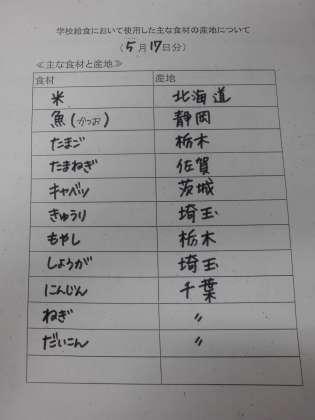 学校給食において使用した主な食材の産地について
(5月17日分)
≪主な食材と産地≫
食材 産地
米 北海道
魚(かつお) 静岡
たまご 栃木
たまねぎ 佐賀
キャベツ 茨城
きゅうり 埼玉
もやし 栃木
しょうが 埼玉
にんじん 千葉
ねぎ 〃
だいこん 〃